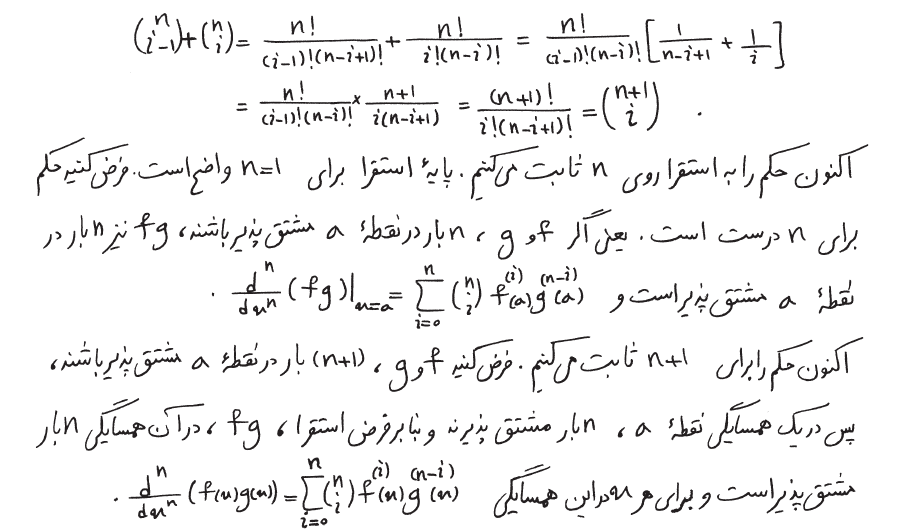 \binom{n}{i-1} + \binom{n}{i} = \frac{n!}{(i-1)!(n-i+1)!} + \frac{n!}{i!(n-i)!} = \frac{n!}{(i-1)!(n-i)!} \left[ \frac{1}{n-i+1} + \frac{1}{i} \right]
= \frac{n!}{(i-1)!(n-i)!} \times \frac{n+1}{i(n-i+1)} = \frac{(n+1)!}{i!(n-i+1)!} = \binom{n+1}{i} .
اکنون حکم را به استقرا روی n ثابت می‌کنیم. پایهٔ استقرا برای n=1 واضح است. فرض کنید حکم
برای n درست است. یعنی اگر f و g ، n بار در نقطهٔ a مشتق پذیر باشند، fg نیز n بار در
نقطهٔ a مشتق پذیر است و \frac{d^n}{dx^n}(fg)|_{x=a} = \sum_{i=0}^{n} \binom{n}{i} f^{(i)}(a) g^{(n-i)}(a) .
اکنون حکم را برای n+1 ثابت می‌کنیم. فرض کنید f و g ، (n+1) بار در نقطهٔ a مشتق پذیر باشند،
پس در یک همسایگی نقطهٔ a ، n بار مشتق پذیرند و بنابر فرض استقرا ، fg ، در آن همسایگی n بار
مشتق پذیر است و برای هر x در این همسایگی \frac{d^n}{dx^n}(f(x)g(x)) = \sum_{i=0}^{n} \binom{n}{i} f^{(i)}(x) g^{(n-i)}(x) .